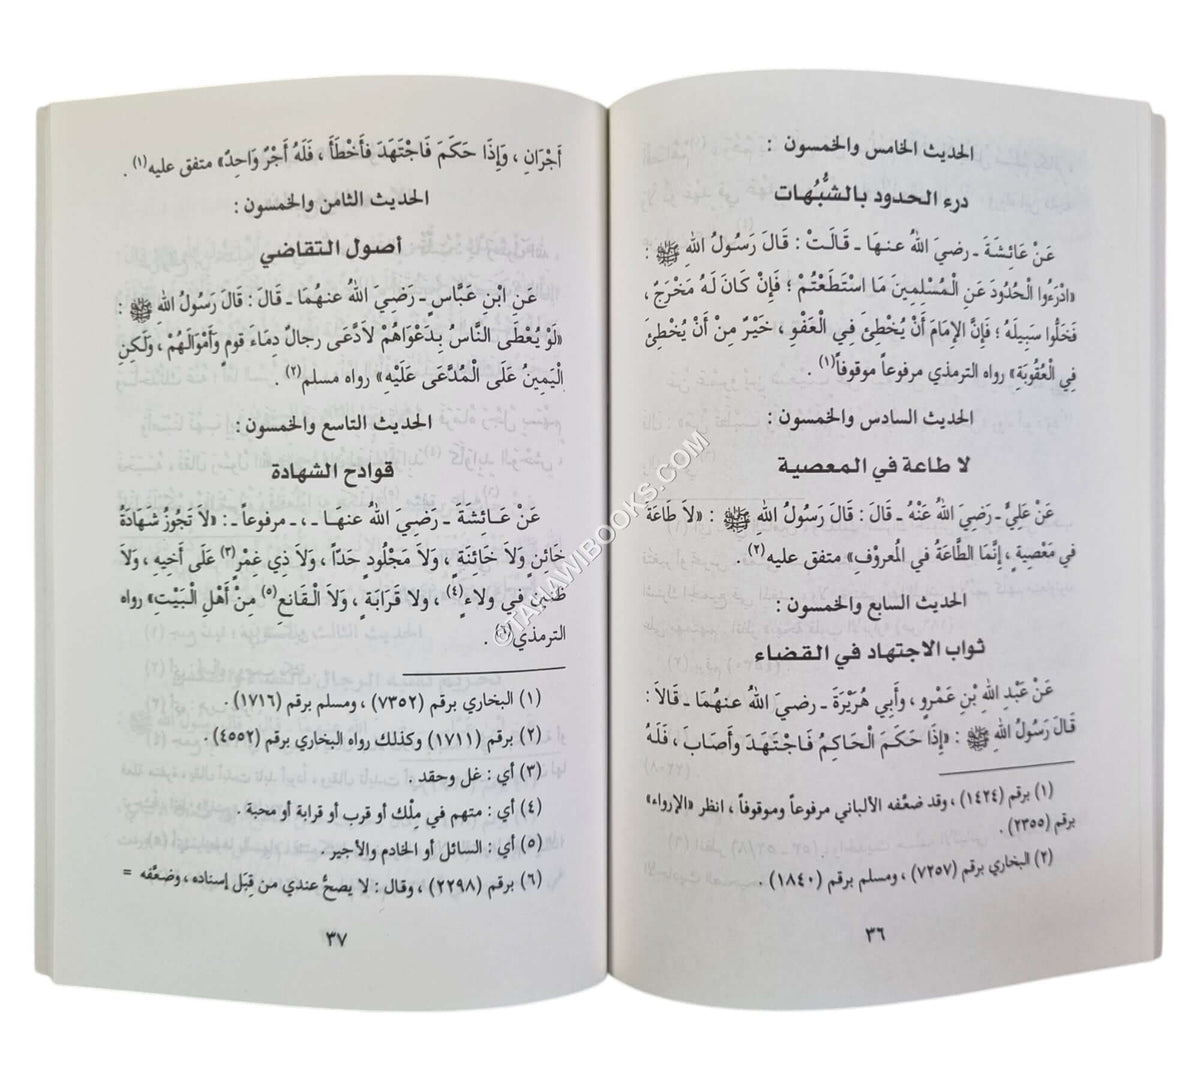 الحديث الخامس والخمسون :
درء الحدود بالشُّبُهات
عَنْ عَائِشَةَ ـ رضيَ اللهُ عنهَا ـ قَالَتْ : قَالَ رَسُولُ اللهِ ﷺ :
«ادْرَءُوا الْحُدُودَ عَنِ الْمُسْلِمِينَ مَا اسْتَطَعْتُمْ ؛ فَإِنْ كَانَ لَهُ مَخْرَجٌ ،
فَخَلُّوا سَبِيلَهُ ؛ فَإِنَّ الإِمَامَ أَنْ يُخْطِئَ فِي الْعَفْوِ ، خَيْرٌ مِنْ أَنْ يُخْطِئَ
فِي الْعُقُوبَةِ» رواه الترمذي مرفوعاً موقوفاً(١) .
الحديث السادس والخمسون :
لا طاعة في المعصية
عَنْ عَلِيٍّ ـ رَضِيَ اللهُ عَنْهُ ـ قَالَ : قَالَ رَسُولُ اللهِ ﷺ : «لاَ طَاعَةَ
في مَعْصِيةٍ ، إِنَّمَا الطَّاعَةُ في المَعروْفِ» متفق عليه(٢) .
الحديث السابع والخمسون :
ثواب الاجتهاد في القضاء
عَنْ عَبْدِ اللهِ بْنِ عَمْرٍو ، وأَبِي هُرَيْرَةَ ـ رضيَ اللهُ عنهُمَا ـ قَالاَ :
قَالَ رَسُولُ اللهِ ﷺ : «إِذَا حَكَمَ الْحَاكِمُ فَاجْتَهَدَ وأَصَابَ ، فَلَهُ
(١) برقم (١٤٢٤) ، وقد ضعَّفه الألباني مرفوعاً وموقوفاً ، انظر «الإرواء»
برقم (٢٣٥٥) .
(٢) البخاري برقم (٧٢٥٧) ، ومسلم برقم (١٨٤٠) .
٣٦
أَجْرَانِ ، وَإِذَا حَكَمَ فَاجْتَهَدَ فَأَخْطَأَ ، فَلَهُ أَجْرٌ وَاحِدٌ» متفق عليه(١) .
الحديث الثامن والخمسون :
أصول التقاضي
عَنِ ابْنِ عَبَّاسٍ ـ رَضِيَ اللهُ عنهُمَا ـ قَالَ : قَالَ رَسُولُ اللهِ ﷺ :
«لَوْ يُعْطَى النَّاسُ بِدَعْوَاهُمْ لاَدَّعَى رجالٌ دِمَاءَ قومٍ وأَمْوَالَهُمْ ، ولَكِنِ
الْيَمِينُ عَلَى الْمُدَّعَى عَلَيْهِ» رواه مسلم(٢) .
الحديث التاسع والخمسون :
قوادح الشهادة
عَنْ عَائِشَةَ ـ رَضِيَ اللهُ عنهَا ـ ، ـ مَرفوعاً ـ : «لاَ تَجُوزُ شَهَادَةُ
خَائنٍ وَلاَ خَائِنةٍ ، وَلاَ مَجْلُودٍ حَدّاً ، وَلاَ ذِي غِمْرٍ(٣) عَلَى أَخيهِ ، وَلاَ
ظَنينٍ في ولاءٍ(٤) ، ولا قَرَابَةٍ ، وَلاَ الْقَانعِ(٥) مِنْ أَهْلِ الْبَيْتِ» رواه
الترمذي(٦) .
(١) البخاري برقم (٧٣٥٢) ، ومسلم برقم (١٧١٦) .
(٢) برقم (١٧١١) وكذلك رواه البخاري برقم (٤٥٥٢) .
(٣) أي : غل وحقد .
(٤) أي : متهم في مِلْك أو قرب أو قرابة أو محبة .
(٥) أي : السائل أو الخادم والأجير .
(٦) برقم (٢٢٩٨) ، وقال : لا يصحُّ عندي من قِبَل إسناده ، وضعَّفه =
٣٧
©TAHAWIBOOKS.COM